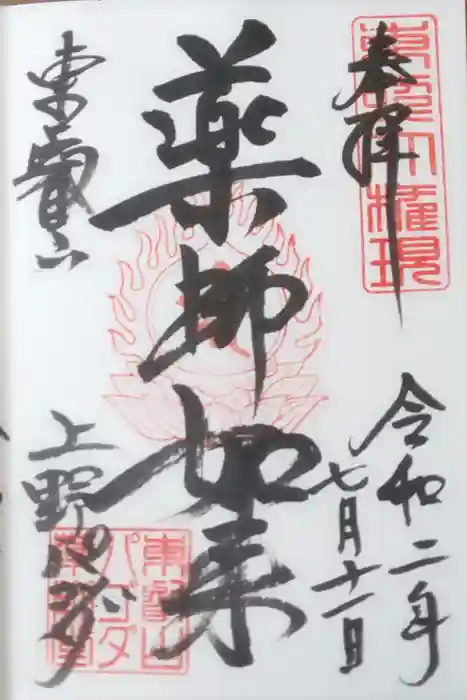 奉拝
東照大権現
令和二年
七月十一日
薬師如来
東叡山
上野
東叡山
パゴダ
薬師堂